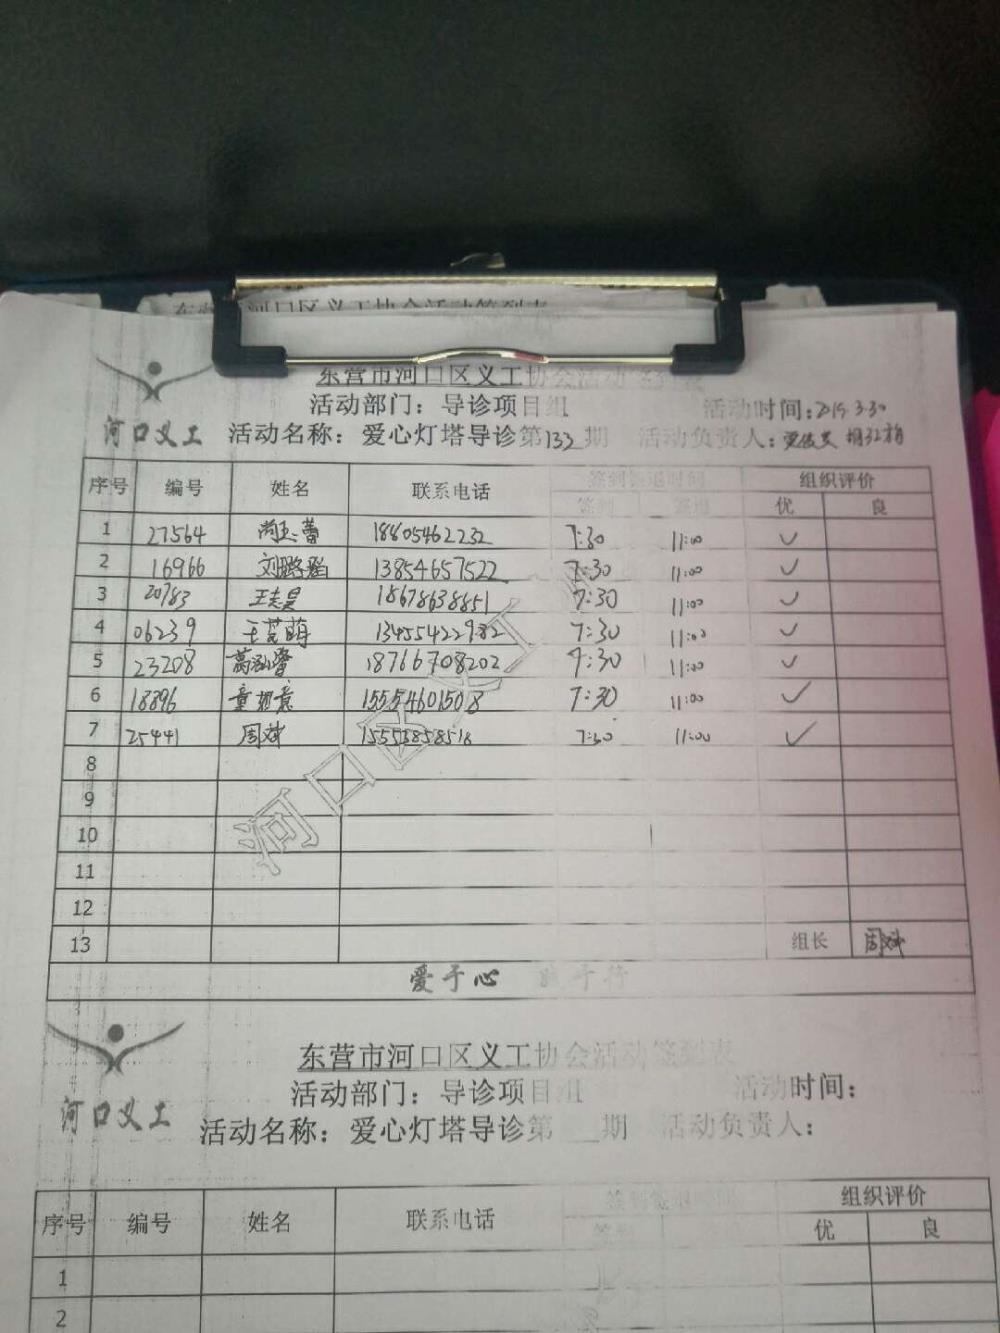 东营市河口区义工协会活动签到表
东营市河口区义工协会活动签到表
活动部门：导诊项目组 活动时间：2019.3.30
河口义工 活动名称：爱心灯塔导诊第133期 活动负责人：
序号 编号 姓名 联系电话 签到签退时间 组织评价
签到 签退 优 良
1 27564 尚玉蕾 18605462232 7:30 11:00 ✓
2 16966 刘璐瑶 13854657522 7:30 11:00 ✓
3 20783 王志昊 18678638851 7:30 11:00 ✓
4 06239 王萌 13455422982 7:30 11:00 ✓
5 23208 葛 18766708202 7:30 11:00 ✓
6 18896 童如意 15554601508 7:30 11:00 ✓
7 25441 周斌 15553858518 7:30 11:00 ✓
8
9
10
11
12
13 组长 周斌
河口区义工
爱于心 践于行
东营市河口区义工协会活动签到表
活动部门：导诊项目组 活动时间：
河口义工 活动名称：爱心灯塔导诊第__期 活动负责人：
序号 编号 姓名 联系电话 签到签退时间 组织评价
签到 优 良
1
2